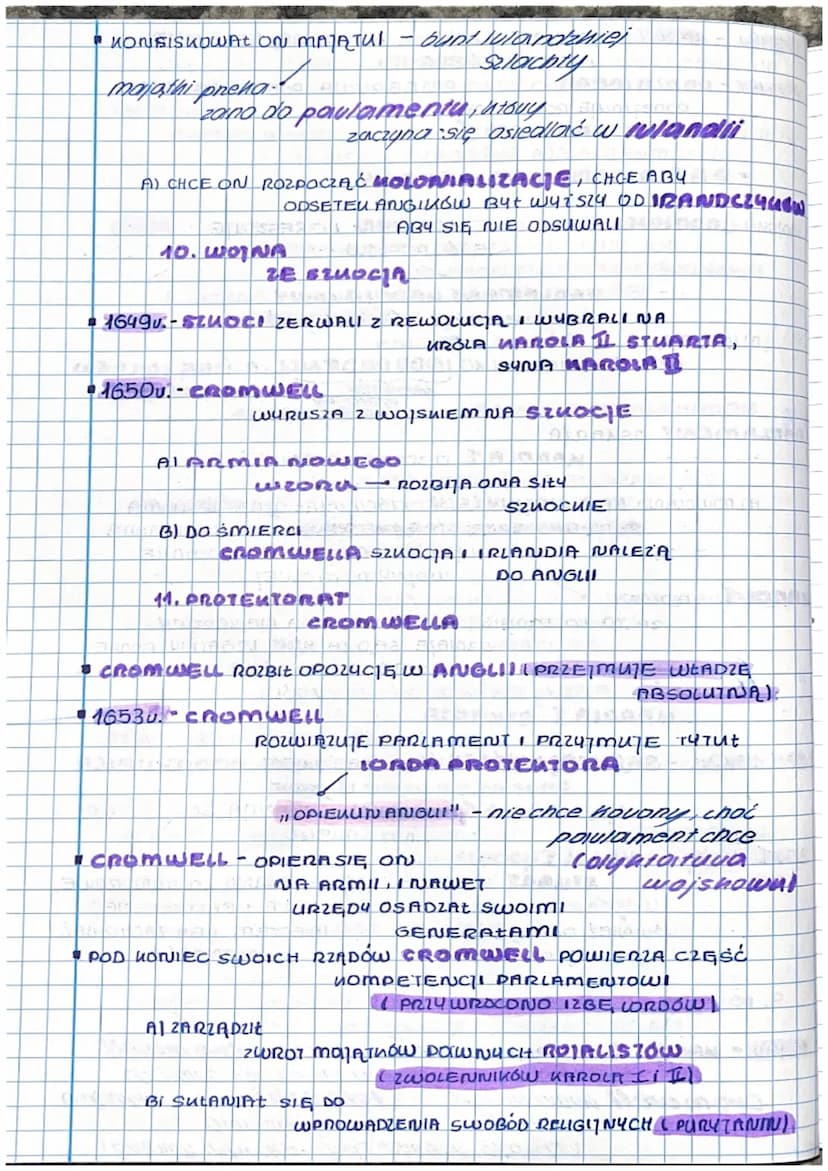 ▪ KONFISKOWAŁ ON MAJĄTKI – bunt irlandzkiej
szlachty
majątki przeka-
zano do parlamentu, który
zaczyna się osiedlać w Irlandii
A) CHCE ON ROZPOCZĄĆ KOLONIALIZACJĘ, CHCE ABY
ODSETEK ANGIKÓW BYŁ WYŻSZY OD IRANDCZYKÓW
ABY SIĘ NIE ODSUWALI
10. WOJNA
ZE SZKOCJĄ
▪ 1649r. - SZKOCI ZERWALI Z REWOLUCJĄ I WYBRALI NA
KRÓLA KAROLA II STUARTA,
SYNA KAROLA II
▪ 1650r. - CROMWELL
WYRUSZA Z WOJSKIEM NA SZKOCJE
A) ARMIA NOWEGO
WZORU → ROZBIJA ONA SIŁY
SZKOCKIE
B) DO ŚMIERCI
CROMWELLA SZKOCJA I IRLANDIA NALEŻĄ
DO ANGLII
11. PROTEKTORAT
CROMWELLA
▪ CROMWELL ROZBIŁ OPOZYCJĘ W ANGLII (PRZEJMUJE WŁADZĘ
ABSOLUTNĄ)
▪ 1653r. - CROMWELL
ROZWIĄZUJE PARLAMENT I PRZYJMUJE TYTUŁ
LORDA PROTEKTORA
„OPIEKUN ANGLII" – nie chce korony, choć
parlament chce
▪ CROMWELL – OPIERA SIĘ ON (dyktatura
NA ARMII, I NAWET wojskowa)
URZĘDY OSADZAŁ SWOIMI
GENERAŁAMI
▪ POD KONIEC SWOICH RZĄDÓW CROMWELL POWIERZA CZĘŚĆ
KOMPETENCJI PARLAMENTOWI
(PRZYWRÓCONO IZBĘ LORDÓW)
A) ZARZĄDZIŁ
ZWROT MAJĄTKÓW DAWNYCH ROJALISTÓW
(ZWOLENNIKÓW KAROLA I i II)
B) SKŁANIAŁ SIĘ DO
WPROWADZENIA SWOBÓD RELIGIJNYCH (PURYTANIN)